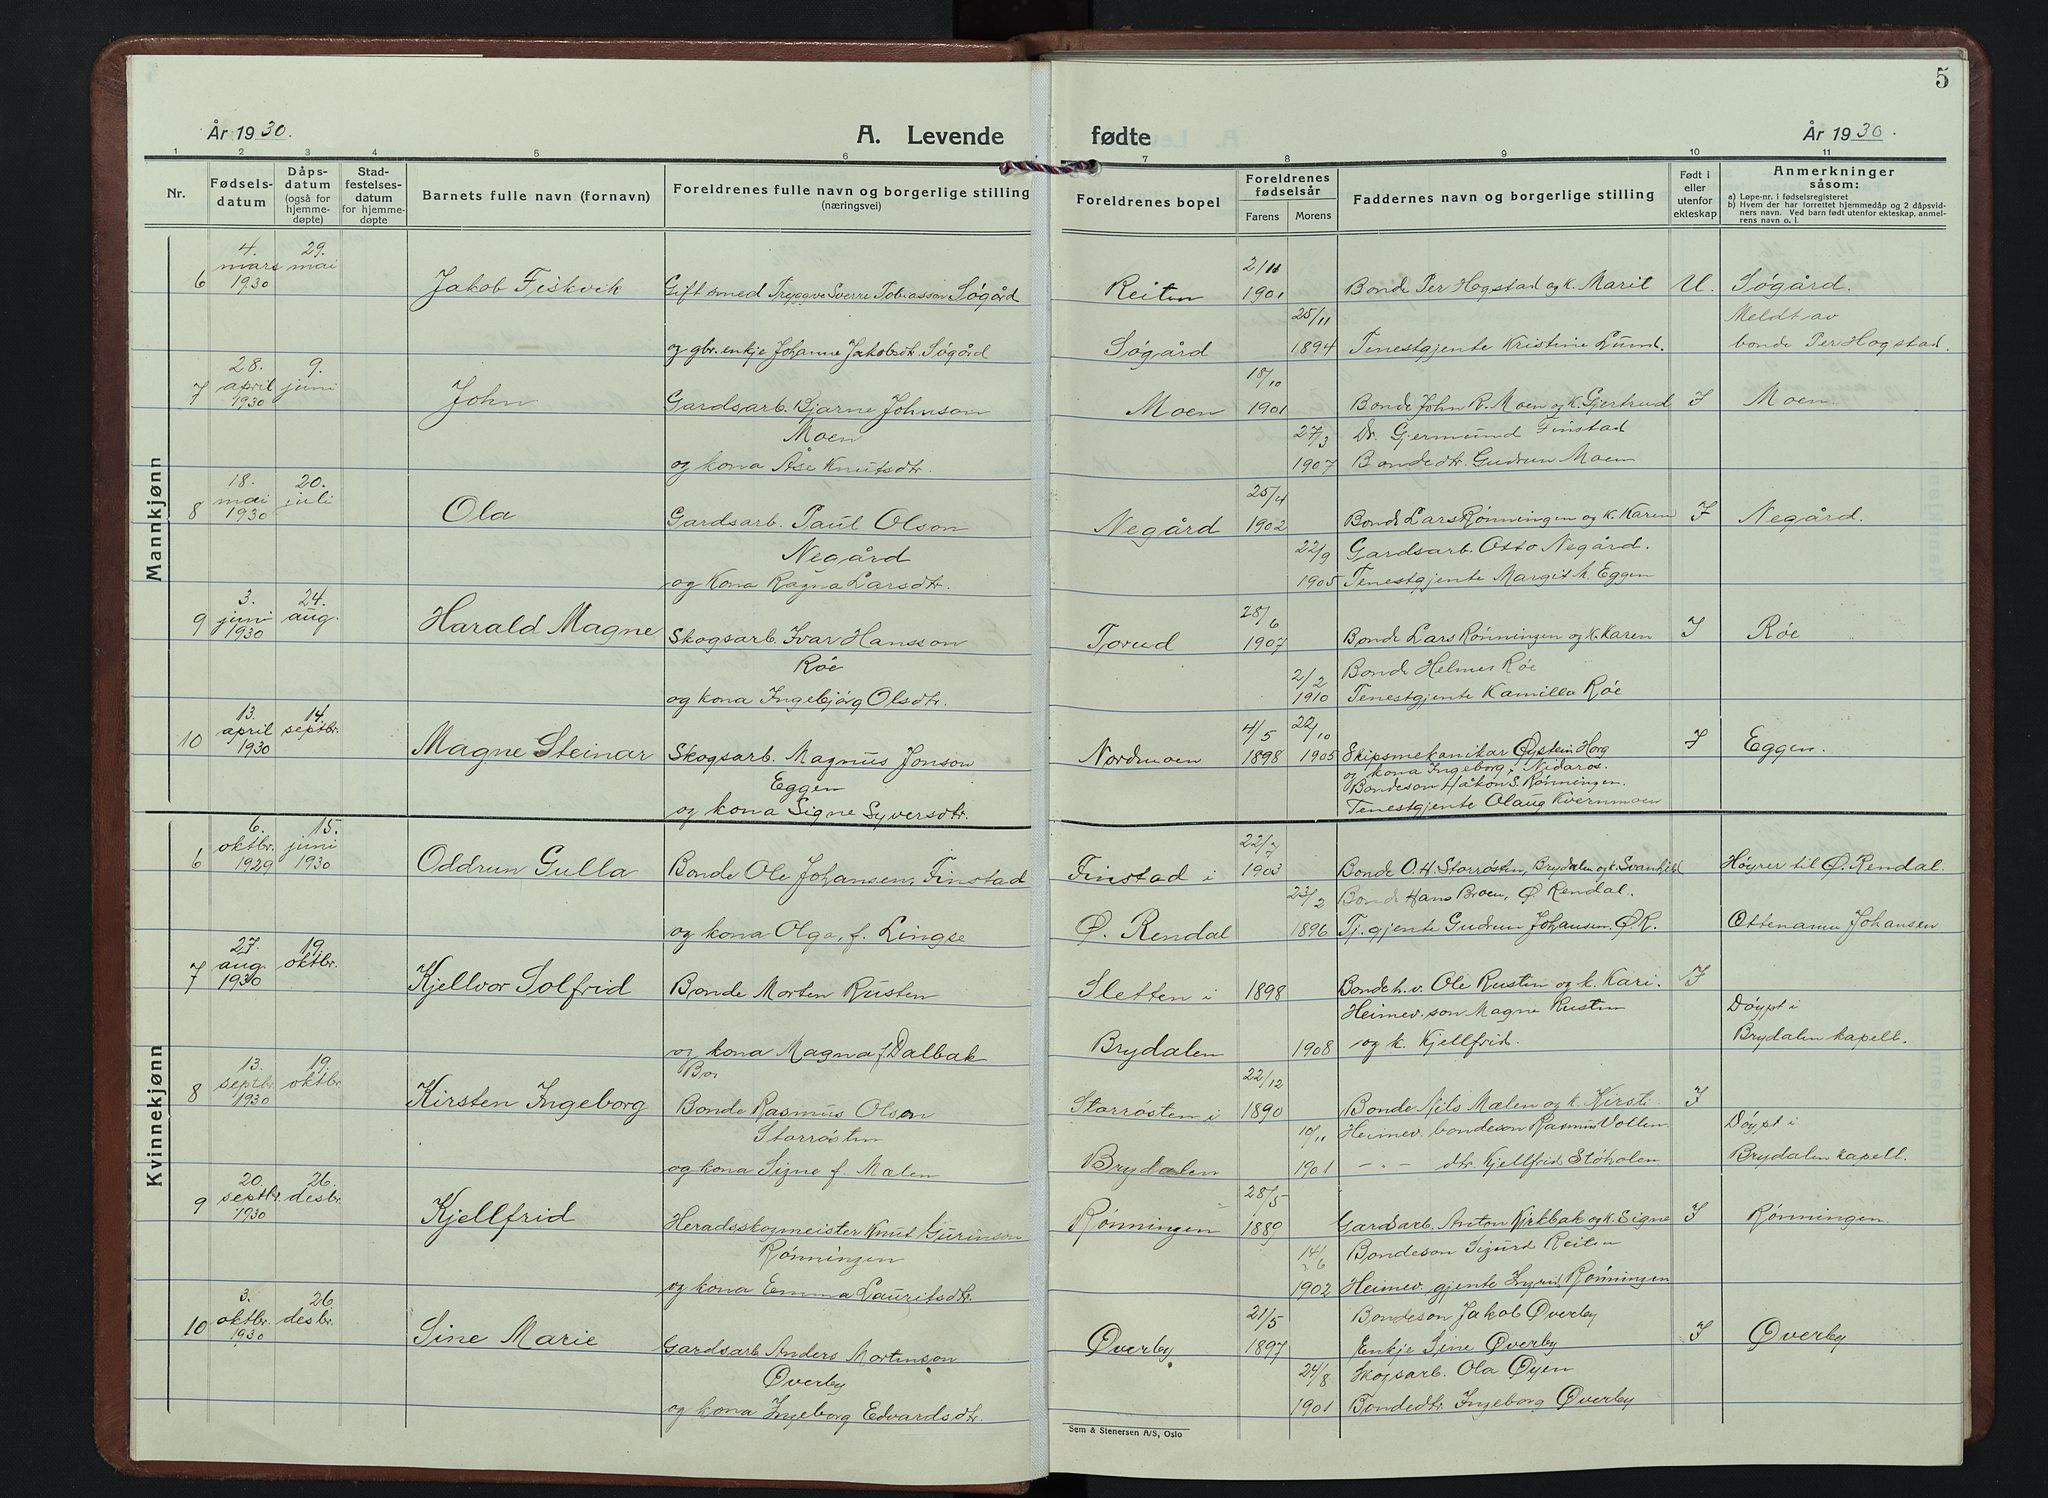 5
År 1930.
A. Levende
fødte
År 1930.
1
2
3
4
5
6
7
8
9
10
11
Nr.
Fødsels-
datum
Dåps-
datum
(også for
hjemme-
døpte)
Stad-
festelses-
datum
for hjemme-
døpte
Barnets fulle navn (fornavn)
Foreldrenes fulle navn og borgerlige stilling
(næringsvei)
Foreldrenes bopel
Foreldrenes
fødselsår
Farens
Morens
Faddernes navn og borgerlige stilling
Født i
eller
utenfor
ekteskap
Anmerkninger
såsom:
a) Løpe-nr. i fødselsregisteret
b) Hvem der har forrettet hjemmedåp og 2 dåpsvid-
ners navn. Ved barn født utenfor ekteskap, anmel-
rens navn o. l.
Mannkjønn
6
4.
mars
1930
29.
mai
Jakob Fiskvik
Giftsmed Tryggve Sverre Tobiasson Søgård
og gbr. enkje Johanne Jakobsdtr. Søgård
Reiten
Søgård
2/11
1901
25/11
1894
Bonde Per Hogstad og k. Marit
Tenestgjente Kristine Lund.
U.
Søgård.
Meldt av
bonde Per Hogstad.
7
28.
april
1930
9.
juni
John
Gardsarb. Bjarne Johnson
Moen
og kona Åse Knutsdtr.
Moen
18/10
1901
27/3
1907
Bonde John R. Moen og k. Gjertrud
Dr. Gjermund Finstad
Bondedtr. Gudrun Moen
I
Moen.
8
18.
mai
1930
20.
juli
Ola
Gardsarb. Paul Olson
Negård
og kona Ragna Larsdtr.
Negård
25/4
1902
22/9
1905
Bonde Lars Rønningen og k. Karen
Gardsarb. Otto Negård.
Tenestgjente Margit K. Eggen
I
Negård.
9
3.
juni
1930
24.
aug.
Harald Magne
Skogsarb. Ivar Hansson
Røe
og kona Ingebjörg Olsdtr.
Torud
28/6
1907
2/2
1910
Bonde Lars Rønningen og k. Karen
Bonde Helmer Røe
Tenestgjente Kamilla Røe
I
Røe
10
13.
april
1930
14.
septbr.
Magne Steinar
Skogsarb. Magnus Jonson
Eggen
og kona Signe Syversdtr.
Nordmoen
4/5
1898
22/10
1905
Skipsmekanikar Øystein Horg
og kona Ingeborg, Nidaros.
Bondeson Håkon S. Rønningen.
Tenestgjente Olaug Kvernmoen
I
Eggen.
Kvinnekjønn
6
6.
oktbr.
1929
15.
juni
1930
Oddrun Gulla
Bonde Ole Johansen, Finstad
og kona Olga, f. Lingse
Finstad i
Ø. Rendal
22/7
1903
23/2
1896
Bonde O. H. Storrøsten, Brydalen og k. Svanhild
Bonde Hans Broen, Ø. Rendal.
Tj. gjente Gudrun Johansen. Ø. R.
Høyrer til Ø. Rendal.
Johansen
7
27.
aug.
1930
19.
oktbr.
Kjellvor Solfrid
Bonde Morten Rusten
og kona Magna f. Dalbak
Sletten i
Brydalen
1898
1908
Bonde h. v. Ole Rusten og k. Kari.
Heimev. son Magne Rusten
og k. Kjellfrid.
I
Døypt i
Brydalen kapell.
8
13.
septbr.
1930
19.
oktbr.
Kirsten Ingeborg
Bo
Bonde Rasmus Olson
Storrøsten
og kona Signe f. Mælen
Storrøsten i
Brydalen
22/12
1890
10/11
1901
Bonde Nils Mælen og k. Kirsti.
Heimev. bondeson Rasmus Vollen
-"- dtr. Kjellfrid Støholen
I
Døypt i
Brydalen kapell.
9
20.
septbr.
1930
26.
desbr.
Kjellfrid
Heradsskogmeister Knut Gurinson
Rønningen
og kona Emma Lauritsdtr.
Rønningen
28/5
1889
14/26
1902
Gardsarb. Anton Kirkbak og k. Signe
Bondeson Sigurd Reiten
Heimev. gjente Ingrid Rønningen
I
Rønningen.
10
3.
oktbr.
1930
26.
desbr.
Sine Marie
Gardsarb. Anders Mortenson
Øverby
og kona Ingeborg Edvardsdtr.
Øverby
21/5
1897
24/8
1901
Bondeson Jakob Øverby
Enkje Sine Øverby
Skogsarb. Ola Øyen
Bondedtr. Ingeborg Øverby
I
Øverby
Sem & Stenersen A/S, Oslo